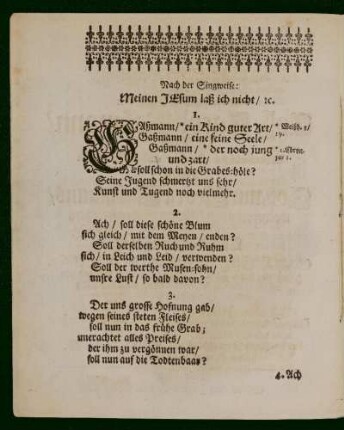 Nach der Singweise:
Meinen JEsum laß ich nicht/ ꝛc.
1.
GAßmann/ * ein Kind guter Art/ * Weißh. 8/
Gaßmann/ eine feine Seele/ 19.
Gaßmann/ * der noch jung
und zart/
soll schon in die Grabes-höle?
Seine Jugend schmertzt uns sehr/
Kunst und Tugend noch vielmehr.
2.
Ach/ soll diese schöne Blum
sich gleich/ mit dem Meyen/ enden?
Soll derselben Ruch und Ruhm
sich/ in Leich und Leid/ verwenden?
Soll der werthe Musen-sohn/
unsre Lust/ so bald davon?
3.
Der uns grosse Hofnung gab/
wegen seines steten Fleises/
soll nun in das frühe Grab;
unerachtet alles Preises/
der ihm zu vergönnen war/
soll nun auf die Todtenbaar?
4. Ach